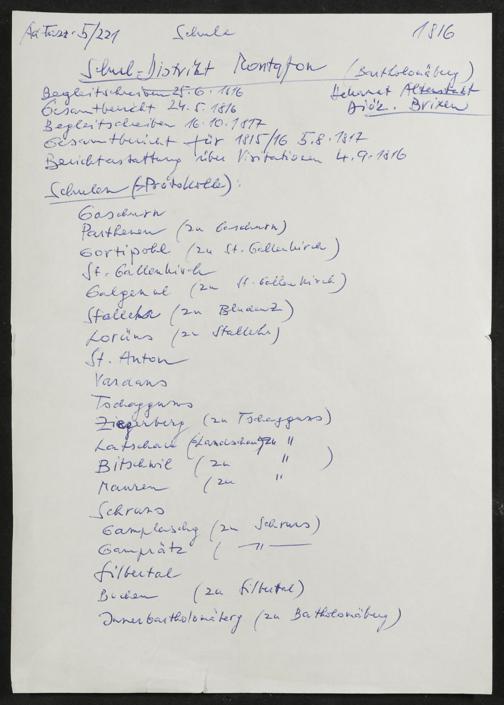 5/221 Schule 1816
Schul-Distrikt Montafon (Bartholomäberg)
Dekanat Altenstadt
Diöz. Brixen
Begleitschreiben 25.6.1816
Gesamtbericht 24.5.1816
Begleitschreiben 16.10.1817
Gesamtbericht für 1815/16 5.8.1817
Berichterstattung über Visitationen 4.9.1816
Schulen (→Protokolle):
Gaschurn
Parthenen (zu Gaschurn)
Gortipohl (zu St. Gallenkirch)
St. Gallenkirch
Galgenul (zu St. Gallenkirch)
Stallehr (zu Bludenz)
Lorüns (zu Stallehr)
St. Anton
Vandans
Tschagguns
Ziegerberg (zu Tschagguns)
Latschau (zu "
Bitschwil (zu " )
Mauren (zu "
Schruns
Gamplaschg (zu Schruns)
Gamprätz ( — " —
Silbertal
Buchen (zu Silbertal)
Innerbartholomäberg (zu Bartholomäberg)